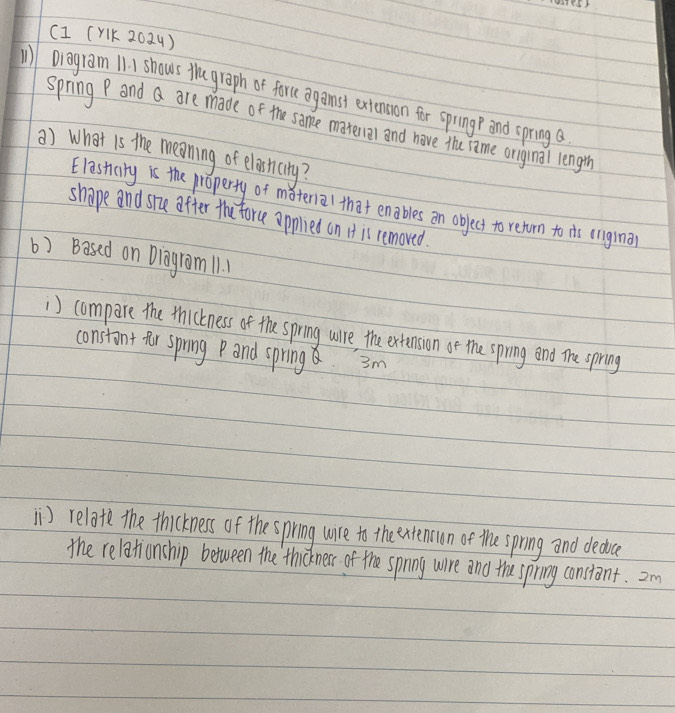 C1 (YIK 2024)
11) Diagram 11.1 shows the graph of force against extension for spring P and spring Q.
Spring P and Q are made of the same material and have the same original length
a) What is the meaning of elasticity?
Elasticity is the property of material that enables an object to return to its original
shape and size after the force applied on it is removed.
b) Based on Diagram 11.1
i) compare the thickness of the spring wire, the extension of the spring and the spring
constant for spring P and spring Q 3m
ii) relate the thickness of the spring wire to the extension of the spring and deduce
the relationship between the thickness of the spring wire and the spring constant. 2m